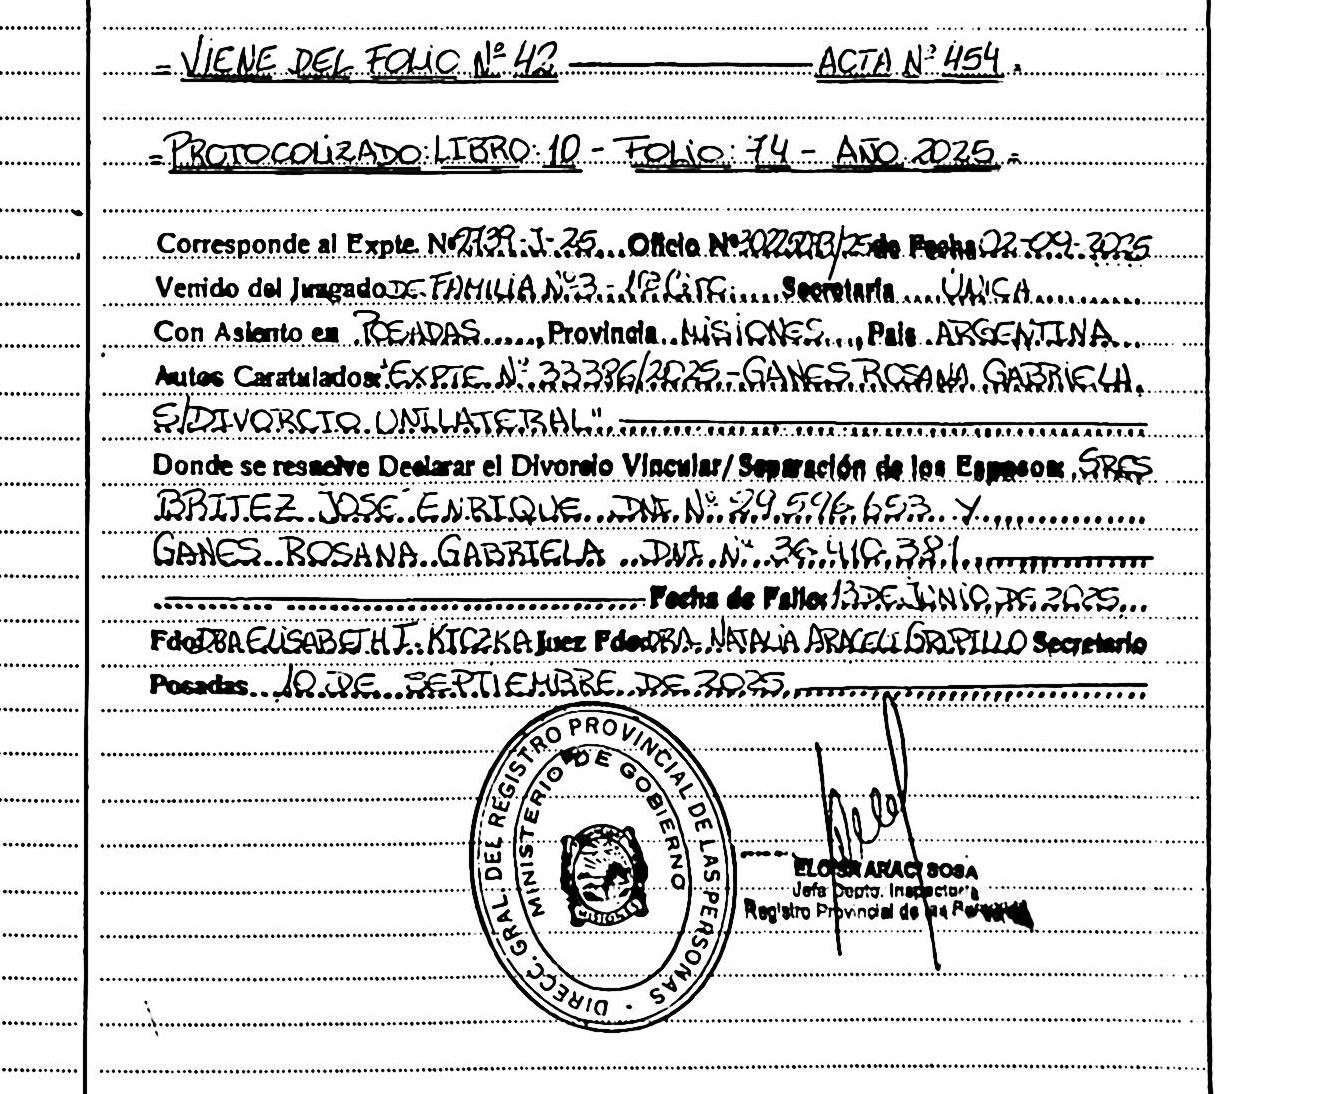 = VIENE DEL FOLIO Nº 42 ——— ACTA Nº 454.
= PROTOCOLIZADO: LIBRO: 10 - FOLIO: 74 - AÑO 2025 =
Corresponde al Expte. Nº 2739-J-25 Oficio Nº /25 de Fecha 02-09-2025
Venido del Juzgado DE FAMILIA Nº 3 - 1ª Circ. Secretaría ÚNICA
Con Asiento en POSADAS, Provincia MISIONES, País ARGENTINA
Autos Caratulados: "EXPTE. Nº 33386/2025 - GANES ROSANA GABRIELA
S/DIVORCIO UNILATERAL"
Donde se resuelve Declarar el Divorcio Vincular/Separación de los Esposos: SRES
BRITEZ JOSÉ ENRIQUE DNI Nº 29.596.653 Y
GANES ROSANA GABRIELA DNI Nº 36.410.381
Fecha de Fallo: 13 DE JUNIO DE 2025
Fdo: DRA ELISABETH I. KICZKA Juez Fdo: DRA. NATALIA ARACELI Secretario
Posadas 10 DE SEPTIEMBRE DE 2025
DIRECC. GRAL. DEL REGISTRO PROVINCIAL DE LAS PERSONAS
MINISTERIO DE GOBIERNO
MISIONES
ELOISA ARACI SOSA
Jefa Depto. Inspectoría
Registro Provincial de las Personas